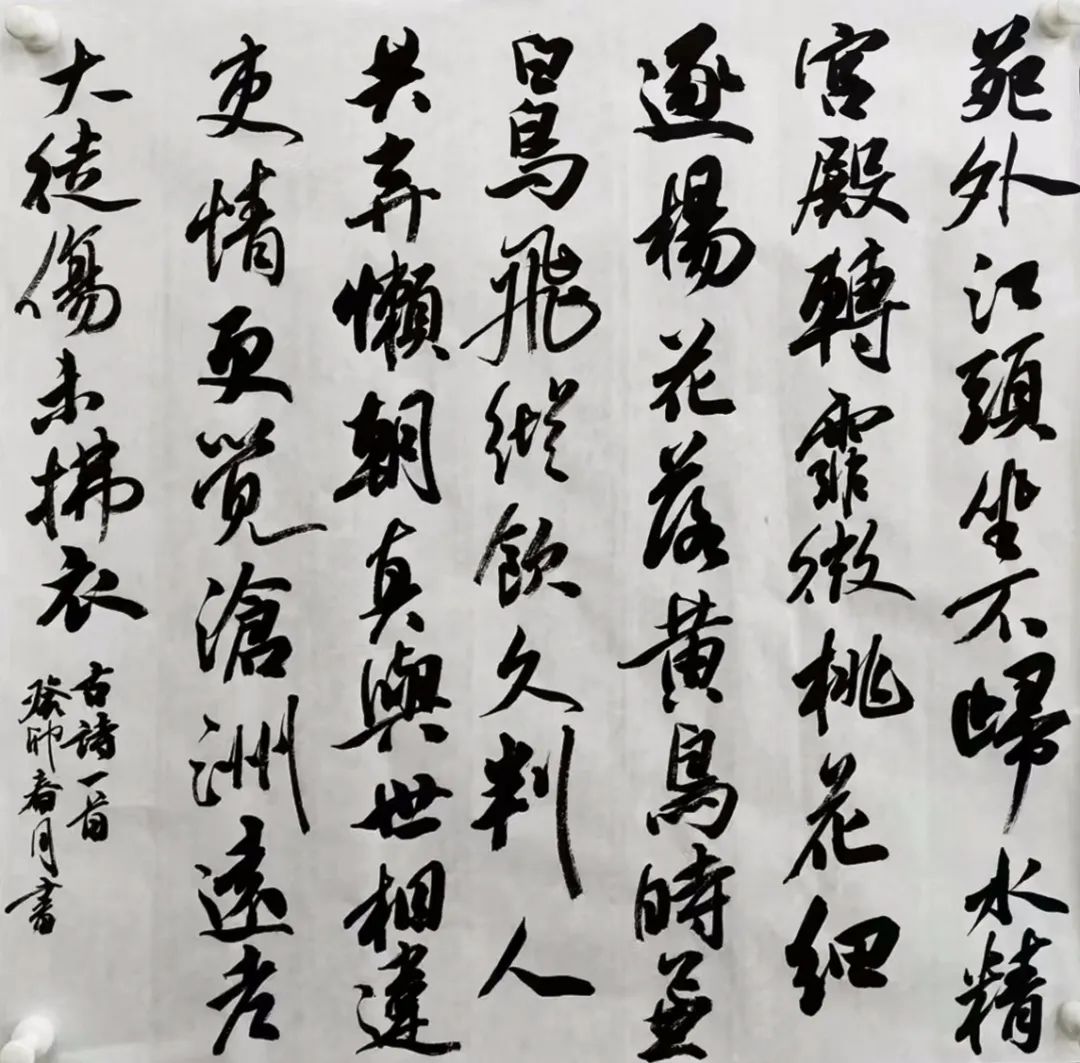 苑外江頭坐不歸水精
宮殿轉霏微桃花細
逐楊花落黃鳥時兼
白鳥飛縱飲久判人
共弃懶朝真與世相違
吏情更覺滄洲遠老
大徒傷未拂衣
古詩一首
癸卯春月書